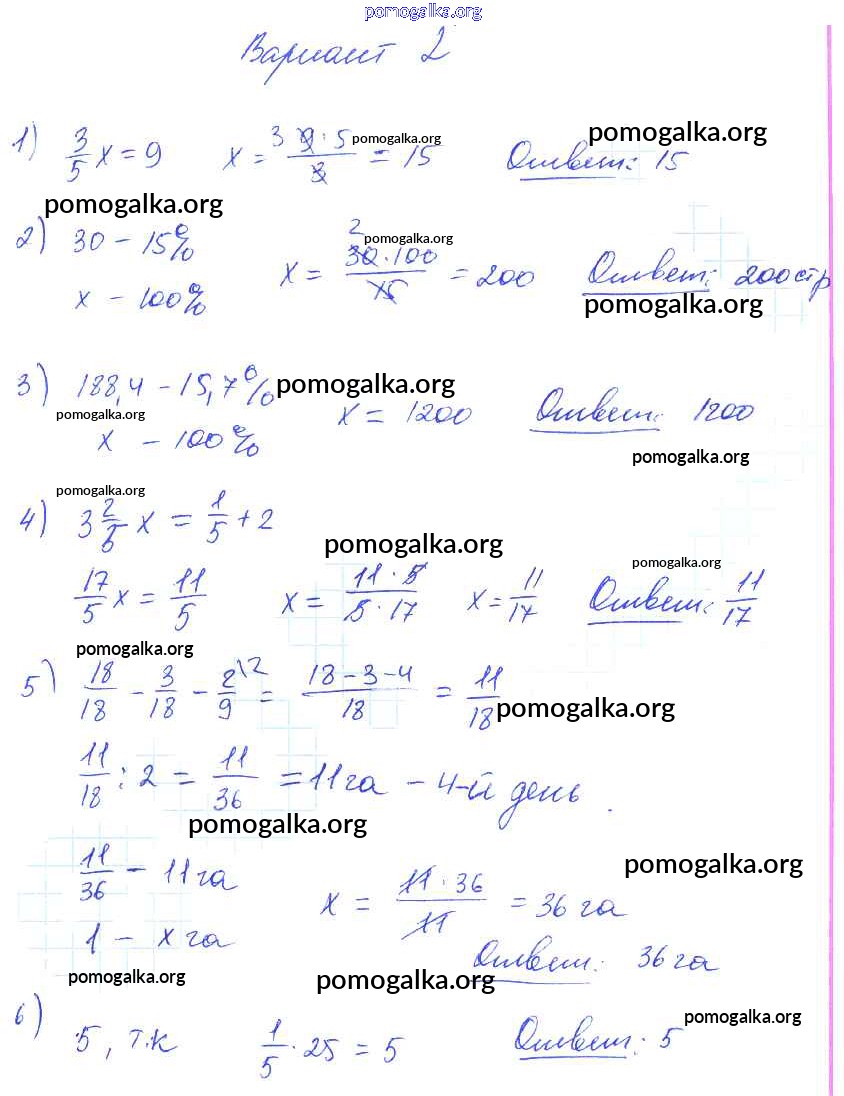 pomogalka.org
Вариант 2
1) 3/5 x = 9 x = 3 9·5/3 = 15 pomogalka.org Ответ: 15 pomogalka.org
pomogalka.org
2) 30 – 15% x = 2 30·100/15 = 200 pomogalka.org Ответ: 200 стр
x – 100% pomogalka.org
3) 188,4 – 15,7% pomogalka.org x = 1200 Ответ: 1200
pomogalka.org
x – 100% pomogalka.org
pomogalka.org
4) 3 2/5 x = 1/5 + 2
pomogalka.org
pomogalka.org
17/5 x = 11/5 x = 11·5/5·17 x = 11/17 Ответ: 11/17
pomogalka.org
5) 18/18 – 3/18 – 2/9 \2 = 18–3–4/18 = 11/18 pomogalka.org
11/18 : 2 = 11/36 = 11 га – 4-й день.
pomogalka.org
11/36 – 11 га pomogalka.org
1 – x га x = 11·36/11 = 36 га
Ответ: 36 га
pomogalka.org pomogalka.org
6) 5, т.к 1/5 · 25 = 5 Ответ: 5 pomogalka.org